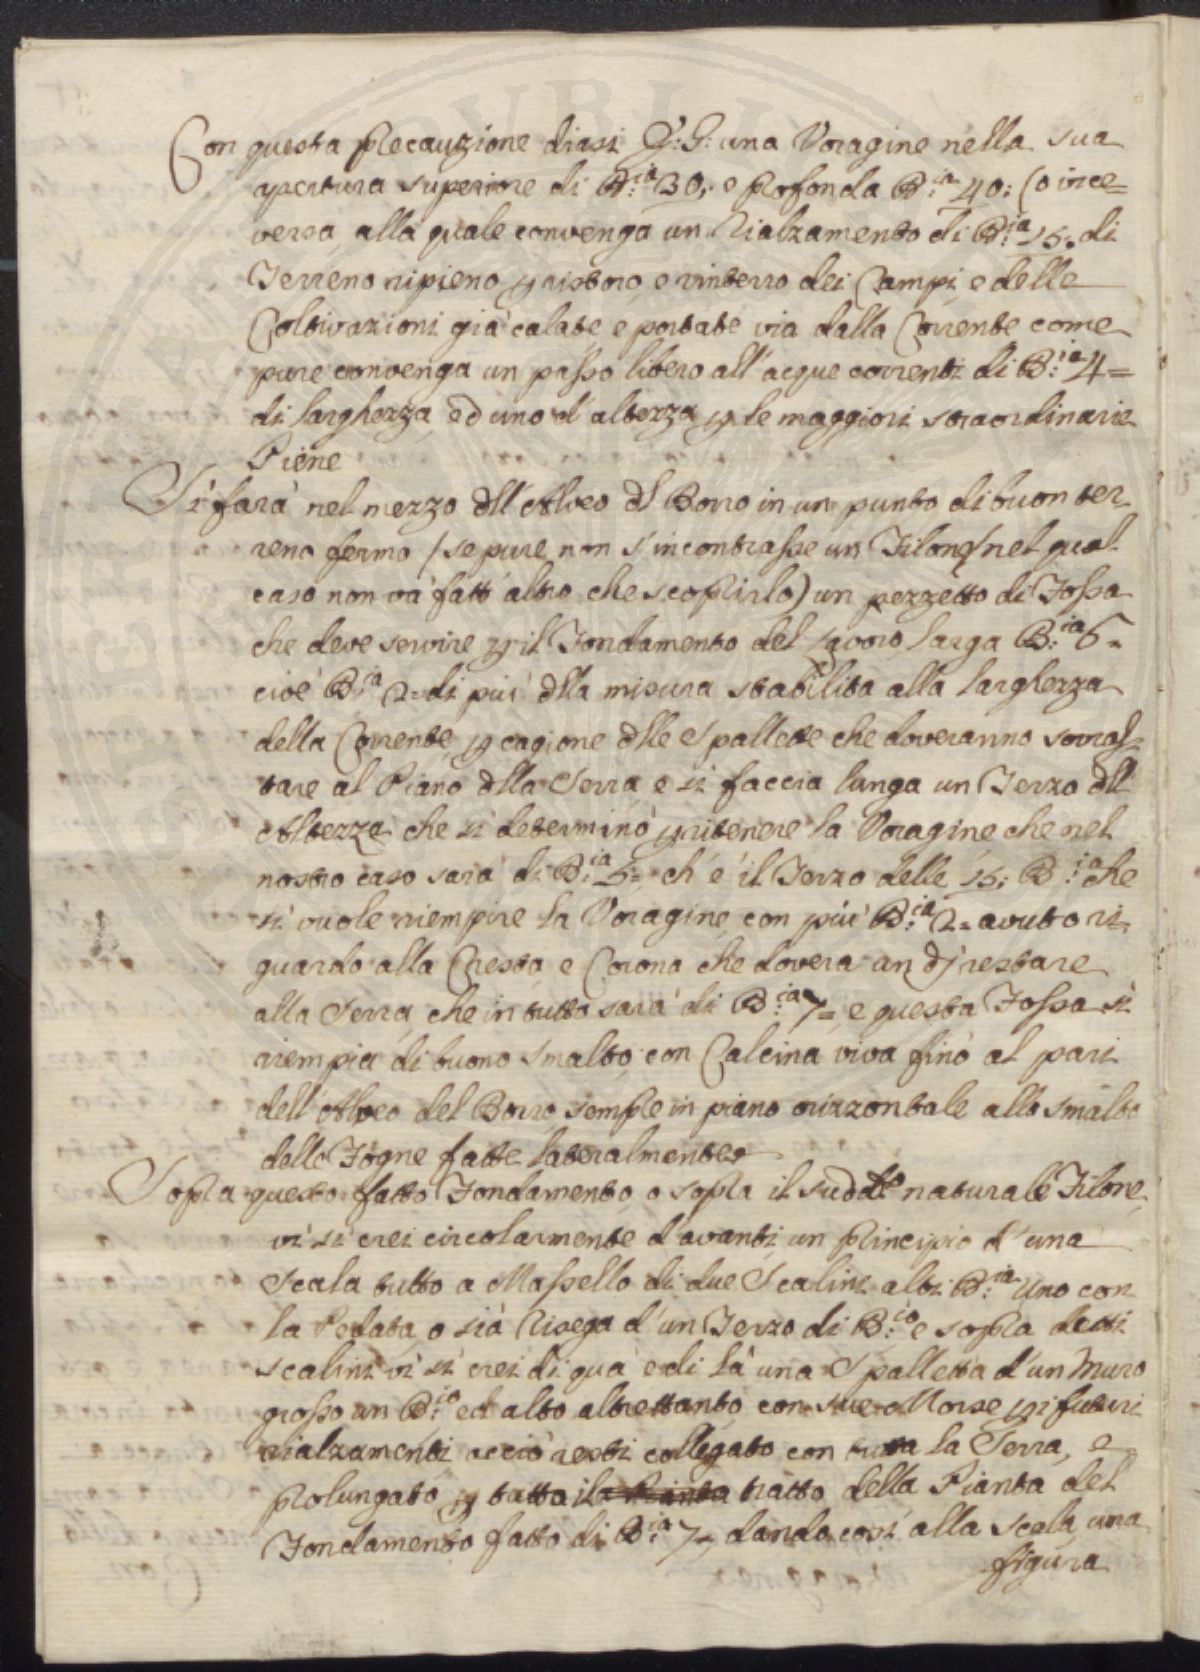 Con questa precauzione diasi P: G: una Voragine nella sua
apertura superiore di B:ia 30; e profonda B:ia 40: (o vice=
versa, alla quale convenga un Rialzamento di B:ia 15. di
Terreno ripieno p ristoro, e rinterro dei Campi, e delle
Coltivazioni già calate, e portate via dalla Corrente come
pure convenga un passo libero all'acque correnti di B:ia 4=
di larghezza, ed uno d'altezza p le maggiori straordinarie
Piene
Si farà nel mezzo dll'Alveo dl Borro in un punto di buon ter=
reno fermo (se pure non s'incontrasse un Filone, nel qual
caso non và fatt'altro che scoprirlo) un pezzetto di Fossa
che deve servire p il Fondamento del lavoro, larga B:ia 6=
cioè B:ia 2= di più dlla misura stabilita alla larghezza
della Corrente, p cagione dlle Spallette che doveranno sovras=
tare al Piano dlla Serra, e si faccia lunga un Terzo dll'
Altezza che si determinò p ritenere la Voragine che nel
nostro caso sarà di B:ia 5= ch'è il Terzo delle 15: B:ia che
si vuole riempire la Voragine, con più B:ia 2= avuto ri=
guardo alla Cresta, e Corona che dovera an dj restare
alla Serra, che in tutto sarà di B:ia 7=, e questa Fossa si
riempia di buono smalto, con Calcina viva fino al pari
dell'Alveo del Borro sempre in piano orizzontale allo smalto
delle Fogne fatte lateralmente
Sopra questo fatto Fondamento, o sopra il sudd.tto naturale Filone,
vi si crei circolarmente d'avanti, un principio d'una
Scala tutto a Massello di due Scalini alti B:ia Uno con
la Pedata, o sià Risega d'un Terzo di B:io e sopra detti
scalini vi si crei di quà e di là una Spalletta d'un Muro
grosso un B:io ed alto altrettanto, con sue Morse p i futuri
rialzamenti acciò resti collegato con tutta la Serra, e
prolungato, p tutto il tratto della Pianta del
Fondamento fatto di B:ia 7=, dando così alla scala, una
figura